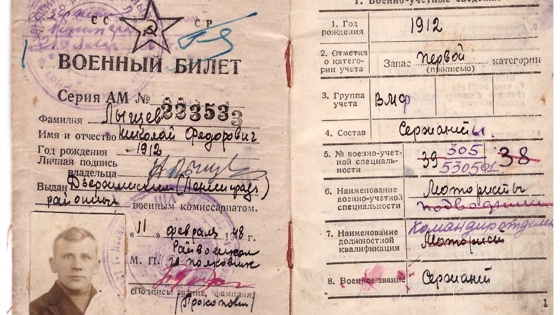 СС СР
ВОЕННЫЙ БИЛЕТ
Серия АМ № 223533
Фамилия
Имя и отчество Николай Федорович
Год рождения 1912
Личная подпись
владельца
Выдан Дзержинским Ленинград
районным военным комиссариатом.
„11" февраля 1948 г.
Райвоенком
М. П. подполковник
(Подпись, звание, фамилия)
1. Военно-учетные сведения
1. Год рождения 1912
2. Отметка о категории учета Запас первой категории
(прописью)
3. Группа учета ВМФ
4. Состав Сержанты
5. № военно-учетной специальности 39 305 530501 38
6. Наименование военно-учетной специальности Мотористы подводники
7. Наименование должностной квалификации Командир отделен. Моторист
8. Военное звание Сержант
1